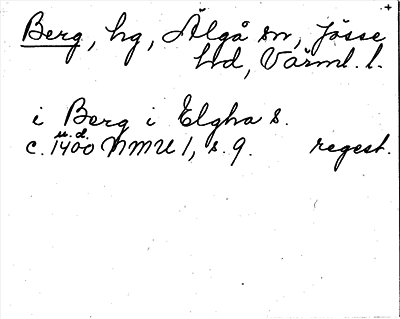 +
Berg, hg, Älgå sn, Jösse
hd, Värml. l.
i Berg i Elgha s.
u.d.
c. 1400 NMU 1, s. 9. regest.